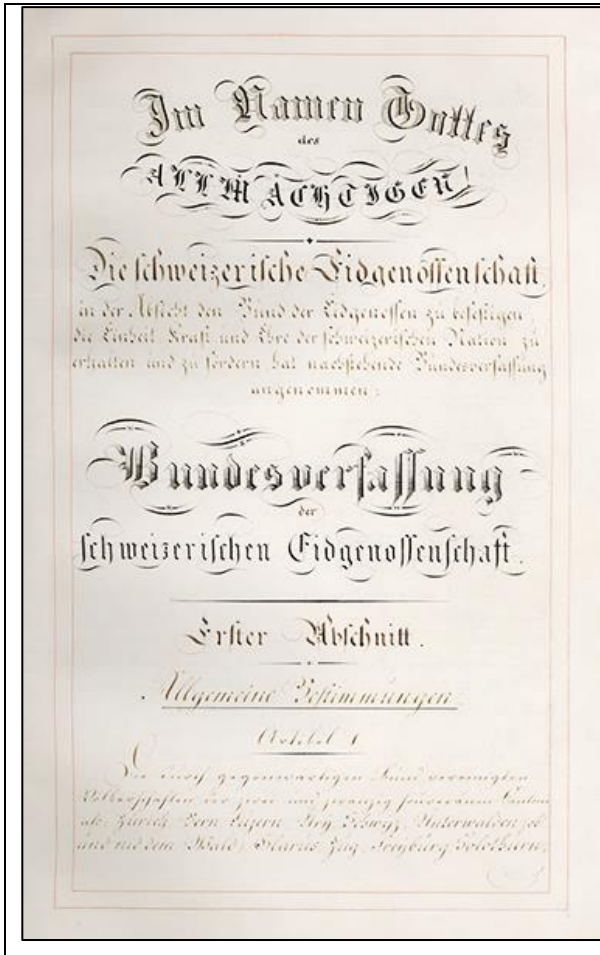 Im Namen Gottes
des
ALLMÄCHTIGEN!
Die schweizerische Eidgenossenschaft,
in der Absicht den Bund der Eidgenossen zu befestigen,
die Einheit Kraft und Ehre der schweizerischen Nation zu
erhalten und zu fördern, hat nachstehende Bundesverfassung
angenommen:
Bundesverfassung
der
schweizerischen Eidgenossenschaft.
Erster Abschnitt.
Allgemeine Bestimmungen.
Artikel 1
Die durch gegenwärtigen Bund vereinigten
Völkerschaften der zwei und zwanzig souveränen Kantone
als: Zürich, Bern, Luzern, Ury, Schwyz, Unterwalden, ob
und nid dem Wald, Glarus, Zug, Freyburg, Solothurn,